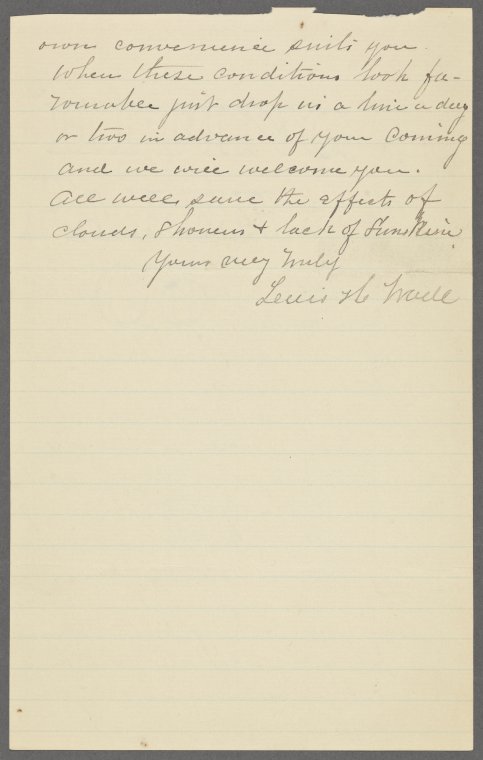 own convenience suits you.
When these conditions look fa-
vorable just drop us a line a day
or two in advance of your Coming
and we will welcome you.
All well, save the effects of
clouds, Showers & lack of Sunshine.
Yours very truly
Lewis H Wade